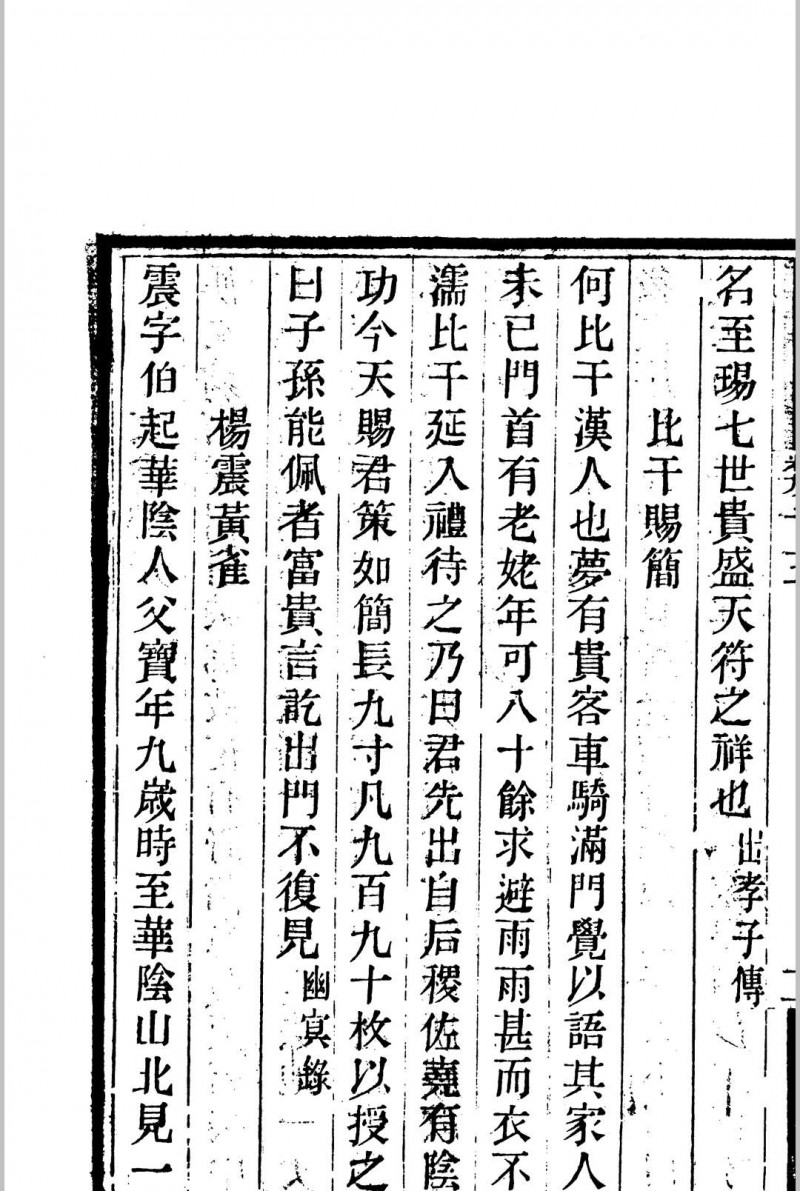 名至瑒七世貴盛天符之祥也出孝子傳
比干賜簡
何比干漢人也夢有貴客車騎滿門覺以語其家人
未已門首有老姥年可八十餘求避雨雨甚而衣不
濡比干延入禮待之乃曰君先出自后稷佐堯有陰
功今天賜君策如簡長九寸凡九百九十枚以授之
曰子孫能佩者富貴言訖出門不復見幽冥錄
楊震黃雀
震字伯起華陰人父寶年九歲時至華陰山北見一